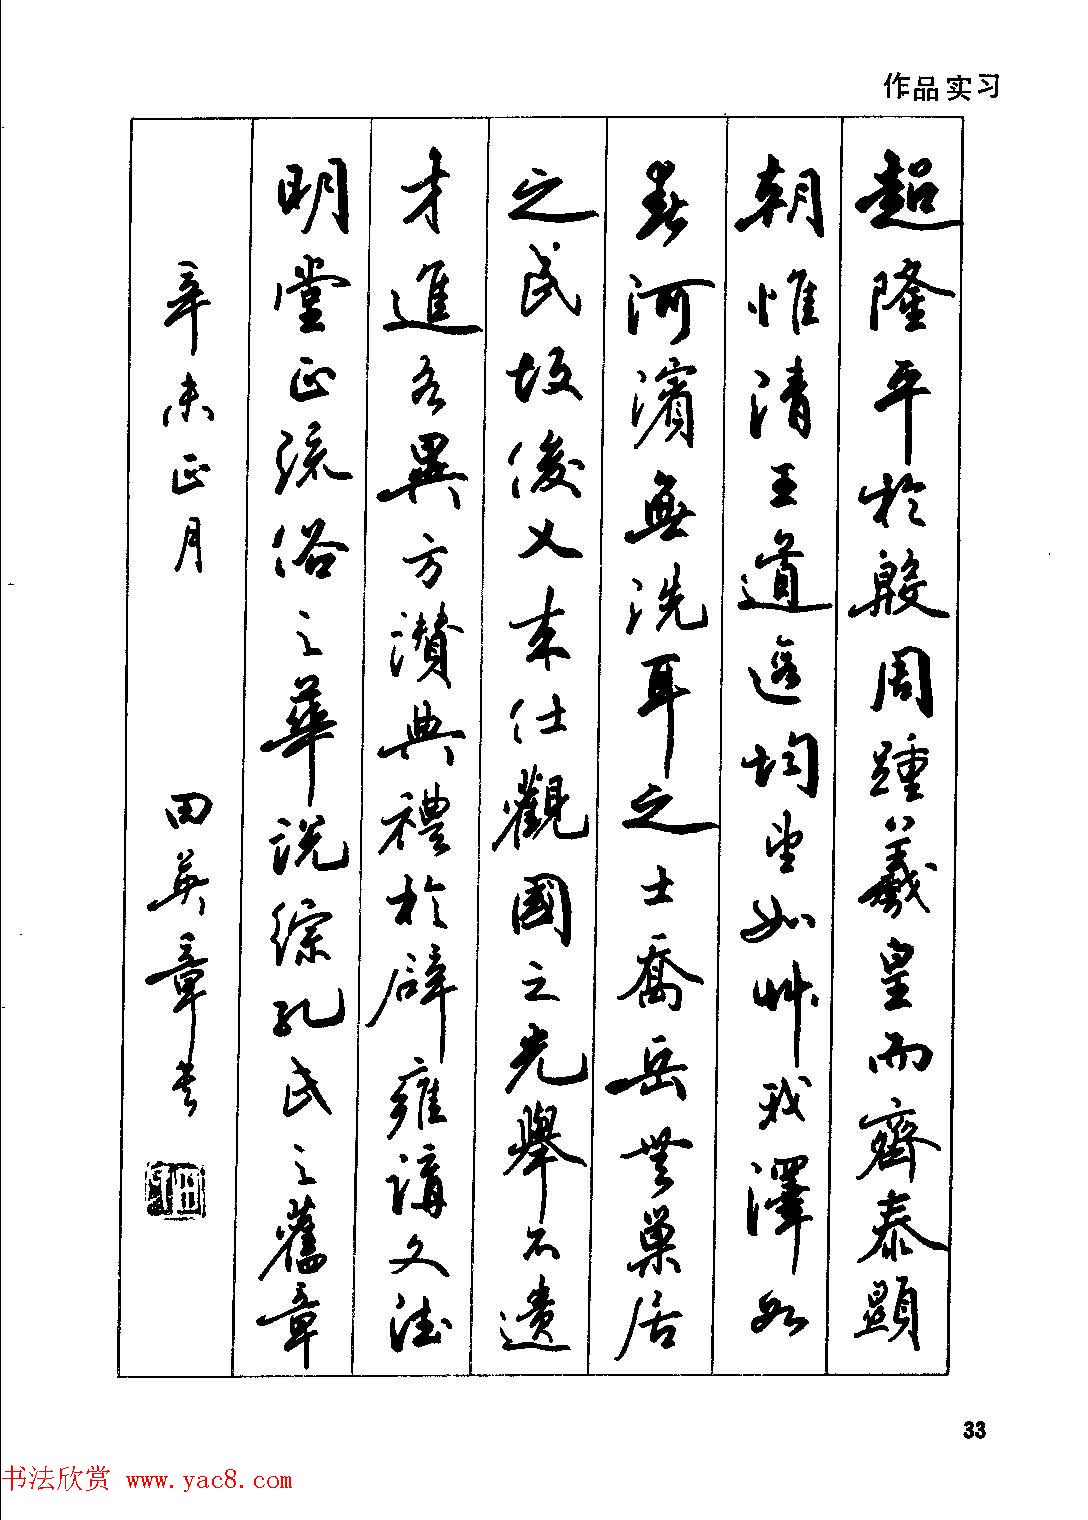 作品实习
超隆平於殷周踵羲皇而齊泰顯
朝惟清王道遐均望如艸我澤如
春河濱無洗耳之士喬岳無巢居
之民故俊乂来仕觀國之光舉不遺
才進各異方讚典禮於辟雍講文德
明堂正流俗之華說綜孔氏之舊章
辛未正月 田英章书
33
书法欣赏 www.yac8.com